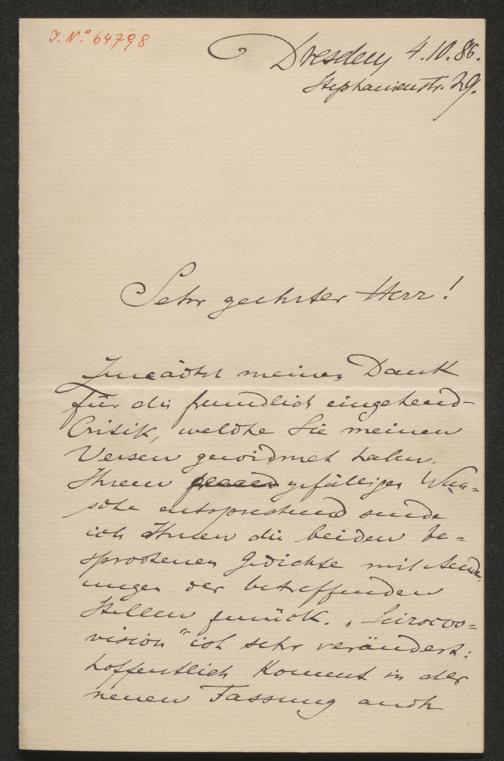 J. N.º 64798
Dresden 4.10.86.
Stephanienstr. 29.
Sehr geehrter Herr!
Zunächst meinen Dank
für die freundlich eingehende
Critik, welche Sie meinen
Versen gewidmet haben.
Ihrem gefälligen Wun-
sche entsprechend sende
ich Ihnen die beiden be-
sprochenen Gedichte mit Aend-
rungen der betreffenden
Stellen zurück. „Scirocco-
vision" ist sehr verändert:
hoffentlich kommt in der
neuen Fassung auch